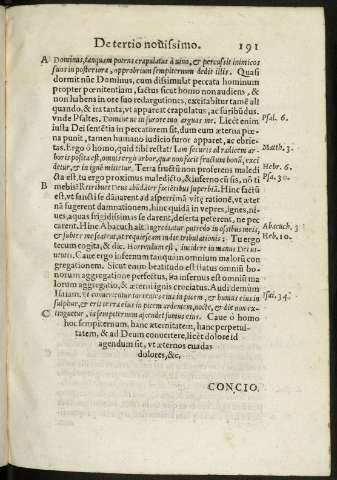 De tertio nouissimo. 191
A Dominus, tanquam potens crapulatus à vino, & percussit inimicos
suos in posteriora, opprobrium sempiternum dedit illis. Quasi
dormit nũc Dominus, cum dissimulat peccata hominum
propter pœnitentiam, factus sicut homo non audiens, &
non habens in ore suo redargutiones, excitabitur tamẽ ali
quando, & ita tanta, vt appareat crapulatus, ac furibũdus.
vnde Psaltes. Domine ne in furore tuo arguas me. Licèt enim Psal. 6.
iusta Dei sentẽtia in peccatorem sit, dum eum æterna pœ-
na punit, tamen humano iudicio furor apparet, ac ebrie-
tas. Ergo ô homo, quid tibi restat? Iam securis ad radicem ar- Matth. 3.
boris posita est, omnis ergo arbor, quæ non facit fructum bonũ, exci
detur, & in ignẽ mittetur. Terra fructũ non proferens maledi Hebr. 6.
cta est, tu ergo proximus maledicto, & inferno cũ sis, nõ ti Psa. 30.
B mebis? Retribuet Deus abũdãter facientibus superbiã. Hinc factũ
est, vt sancti se dauerent ad asperrimã vitę rationẽ, vt æter
nã fugerent damnationem, hinc quidã in vepres, ignes, ni-
ues, aquas frigidissimas se darent, deserta peterent, ne pec
carent. Hinc Abacuth ait. ingrediatur putredo in ossibus meis, Abacuch. 3
& subter me scateat, ut requiescam in die tribulationis: Tu ergo Heb. 10.
tecum cogita, & dic. Horrendum est, incidere in manus Dei ui-
uentis. Caue ergo infernum tanquã in omnium malorũ con
gregationem. Sicut enim beatitudo est status omniũ bo-
norum aggregatione perfectus, ita infernus est omniũ ma
lorum aggregatio, & æterni ignis crociatus. Audi demum
Isaiam. Et conuertentur torrentes eius in picem, & humus eius in Isai. 34.
sulphur, & erit terra eius in picem ardentem, nocte, & die non ex-
C tinguetur, in sempiternum ascendet fumus eius. Caue ô homo
hoc sempiternum, hanc æternitatem, hanc perpetui-
tatem, & ad Deum conuertere, licèt dolore id
agendum sit, vt æternos euadas
dolores, &c.
CONCIO.